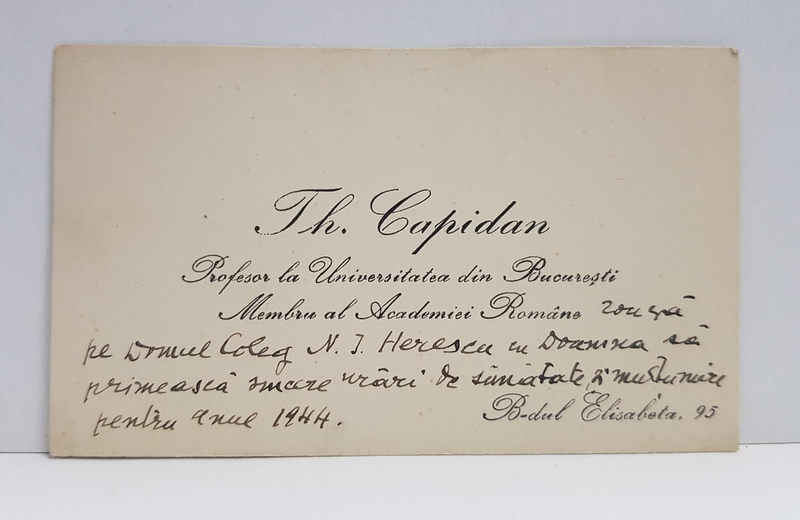 Th. Capidan
Profesor la Universitatea din București
Membru al Academiei Române roagă
pe Domnul Coleg N. I. Herescu cu Doamna să
primească sincere urări de sănătate și mulțumire
pentru anul 1944.
B-dul Elisabeta, 95